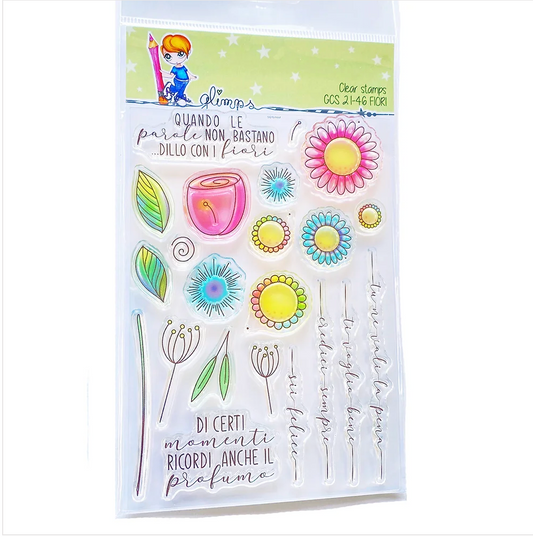 glimps
Clear stamps
GCS 21-46 FIORI
QUANDO LE
parole NON BASTANO
...DILLO CON I fiori
sii felice
credici sempre
ti voglio bene
tu ne vale la pena
DI CERTI
momenti
RICORDI ANCHE IL
profumo